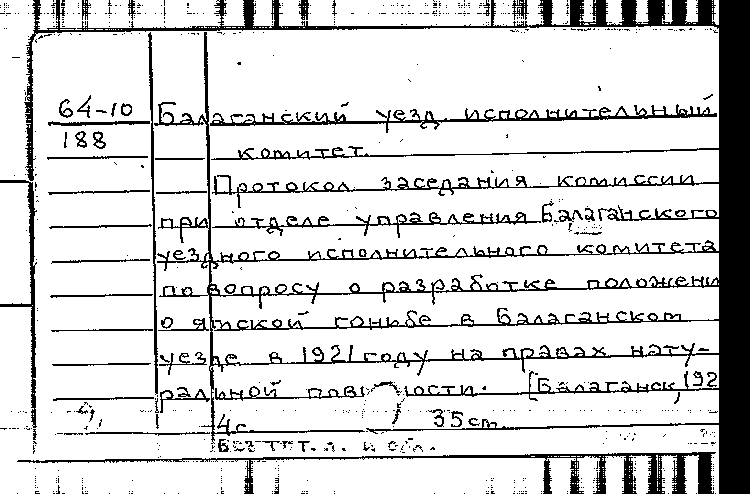 64-10 Балаганский уезд. исполнительный
188
комитет.
Протокол заседания комиссии
при отделе управления Балаганского
уездного исполнительного комитета
по вопросу о разработке положени
о ямской гоньбе в Балаганском
уезде в 1921 году на правах нату-
ральной повинности. [Балаганск, 192
4с. 35 см.
Без тит. л. и обл.